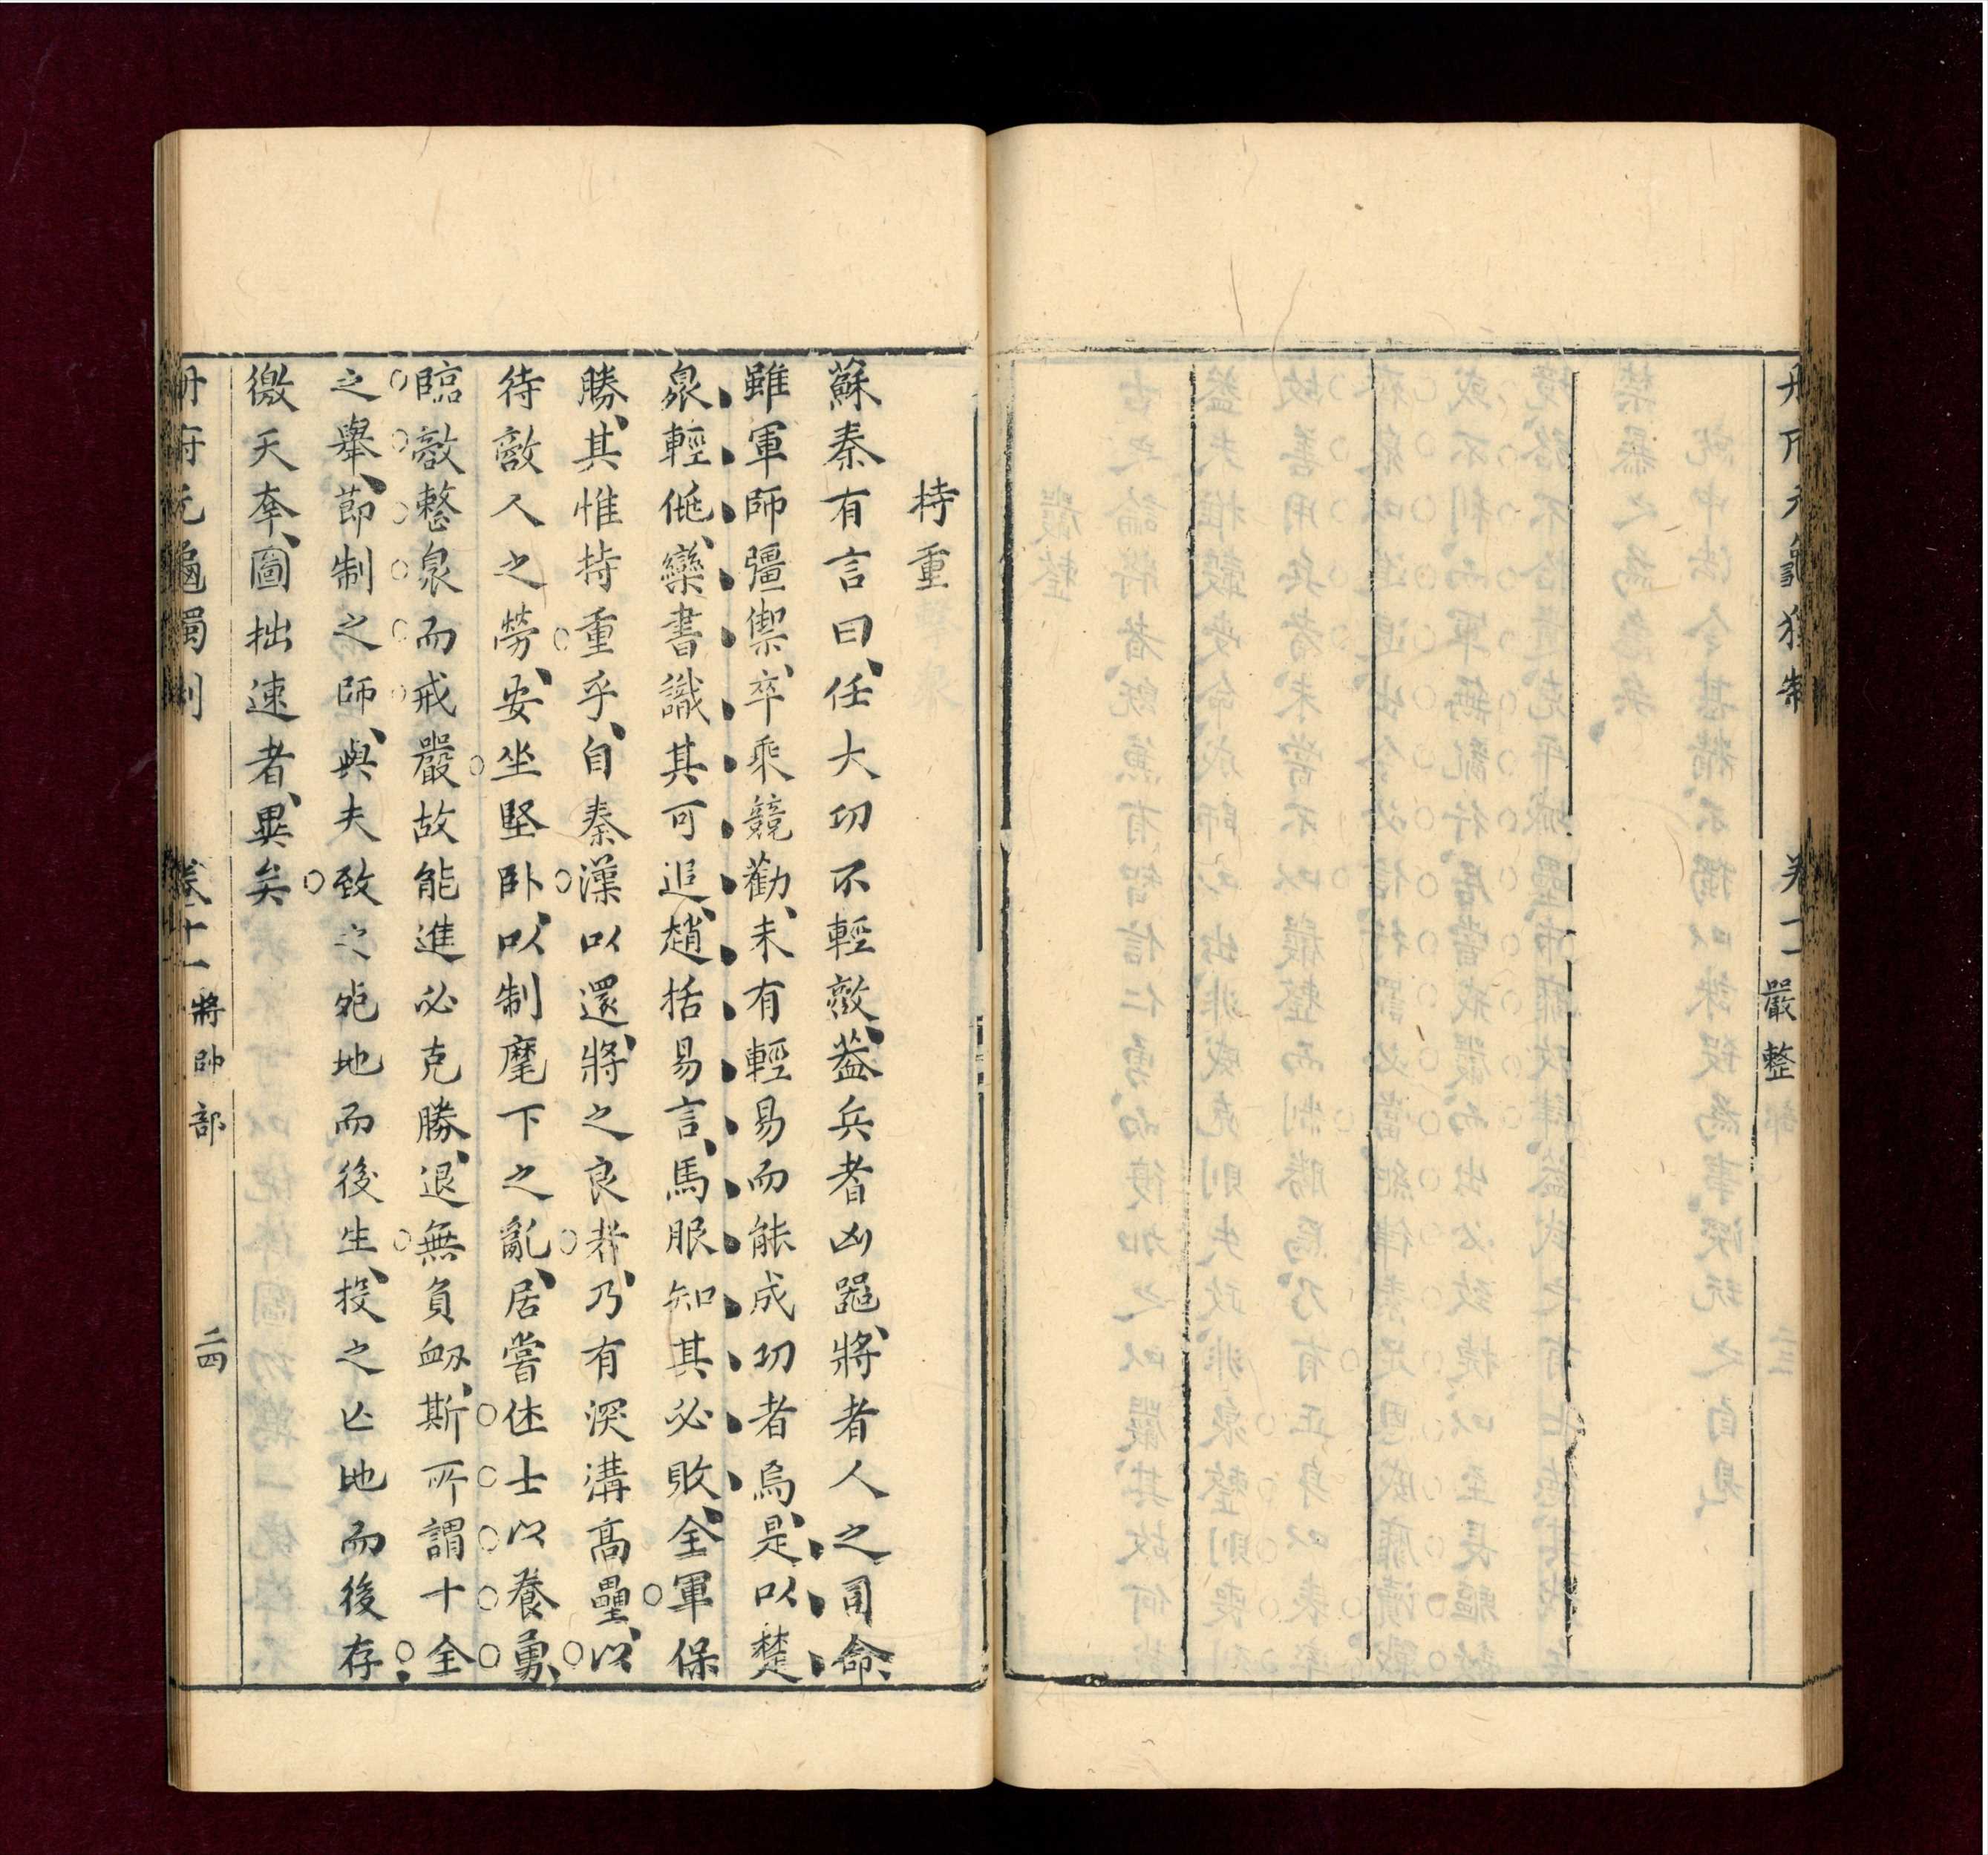 冊府元龜獨制 卷十一 嚴整
持重
蘇秦有言曰任大功不輕敵蓋兵者凶器將者人之司命
雖軍師彊禦卒乘競勸未有輕易而能成功者焉是以楚
衆輕佻欒書識其可追趙括易言馬服知其必敗全軍保
勝其惟持重乎自秦漢以還將之良者乃有深溝高壘以
待敵人之勞安坐堅卧以制麾下之亂居嘗休士以養勇
臨敵整衆而戒嚴故能進必克勝退無負衂斯所謂十全
之舉節制之師與夫致之死地而後生投之亡地而後存
徼天幸圖拙速者異矣
冊府元龜獨制 卷十一 將帥部 二四